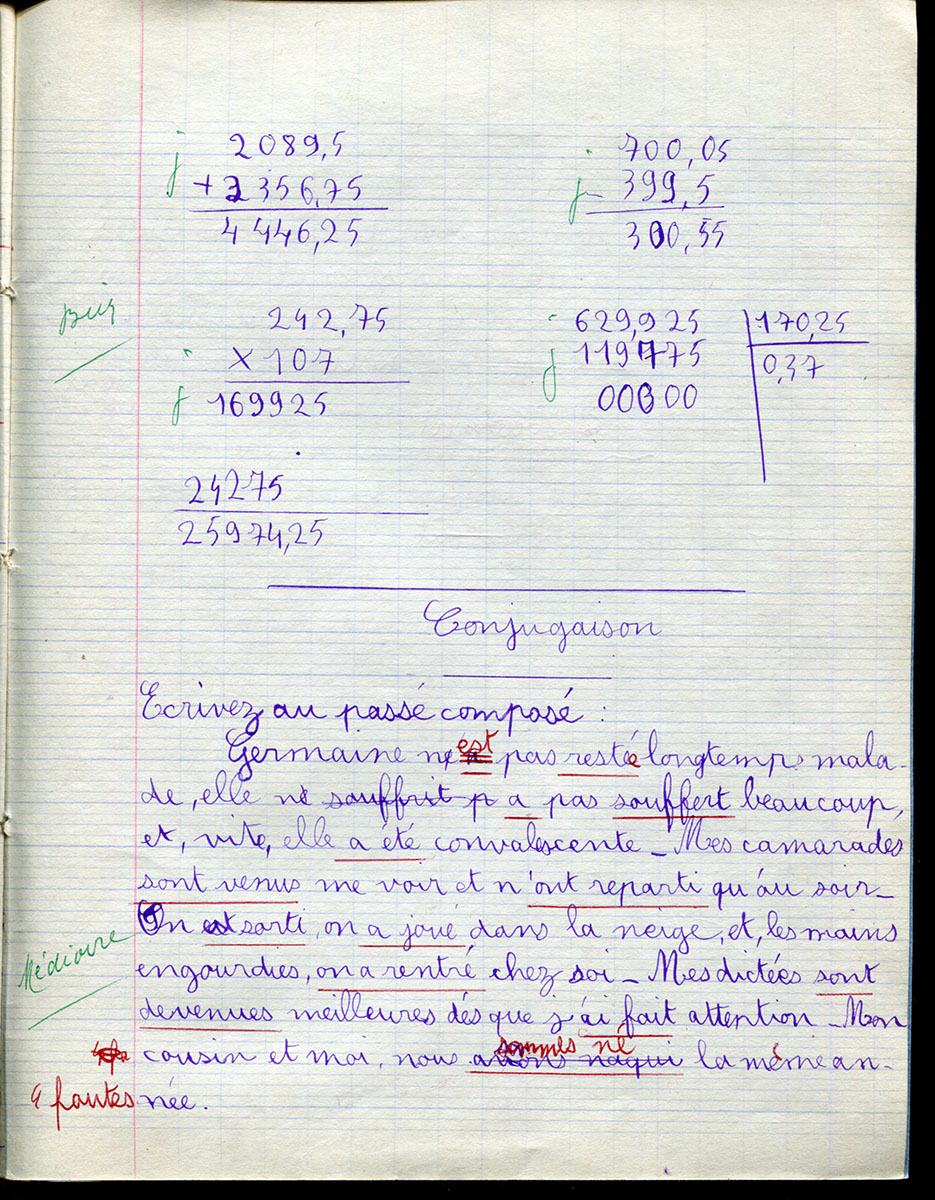 j 2089,5
+ 2356,75
4446,25
j 700,05
- 399,5
300,55
Bien
242,75
j × 107
169925
24275
25974,25
j 629,925 | 170,25
119175 | 0,37
00000
Conjugaison
Ecrivez au passé composé :
Germaine n' est pas restée longtemps mala-
de, elle n̶é̶ s̶o̶u̶f̶f̶r̶i̶t̶ p̶ a pas souffert beaucoup,
et, vite, elle a été convalescente _ Mes camarades
sont venus me voir et n'ont reparti qu'au soir _
On est sorti, on a joué dans la neige, et, les mains
engourdies, on a rentré chez soi _ Mes dictées sont
Médiocre
devenues meilleures dès que j'ai fait attention _ Mon
sommes né
cousin et moi, nous a̶v̶o̶n̶s̶ n̶a̶q̶u̶i̶ la même an-
4 fautes née.